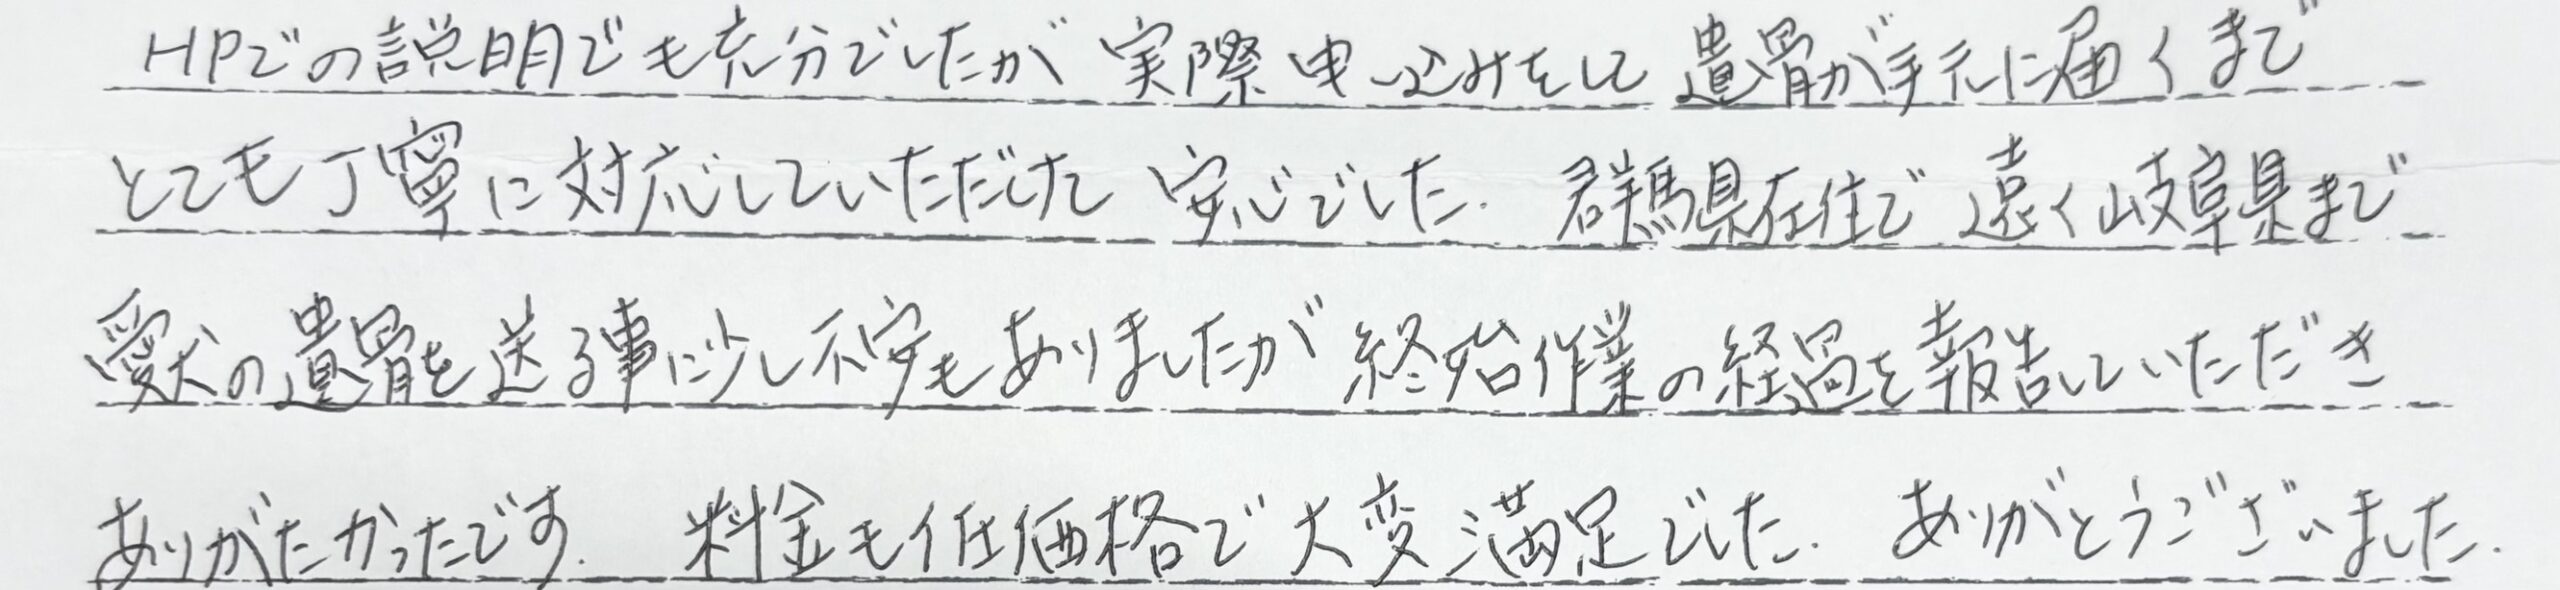 HPでの説明でも充分でしたが 実際申し込みをして 遺骨が手元に届くまで
とても丁寧に対応していただけて 安心でした. 群馬県在住で 遠く岐阜県まで
愛犬の遺骨を送る事に少し不安もありましたが 終始作業の経過を報告していただき
ありがたかったです. 料金も低価格で大変満足でした. ありがとうございました.